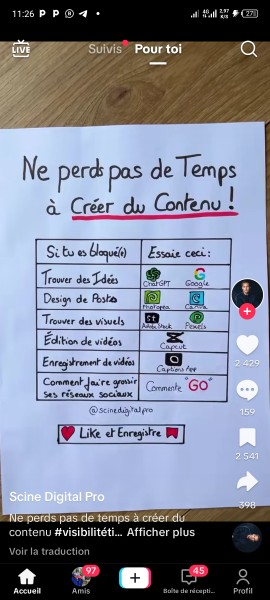 11:26
LIVE
Suivis
Pour toi
Ne perds pas de Temps
à Créer du Contenu !
Si tu es bloqué(e)
Essaie ceci :
Trouver des Idées
ChatGPT
Google
Design de Posts
Photopea
Canva
Trouver des visuels
Adobe Stock
Pexels
Édition de vidéos
Capcut
Enregistrement de vidéos
Captions App
Comment faire grossir
ses réseaux sociaux
Commente "GO"
@scinedigitalpro
Like et Enregistre
2 429
159
2 541
398
Scine Digital Pro
Ne perds pas de temps à créer du
contenu #visibilitéti... Afficher plus
Voir la traduction
97
45
Accueil
Amis
Boîte de récepti...
Profil